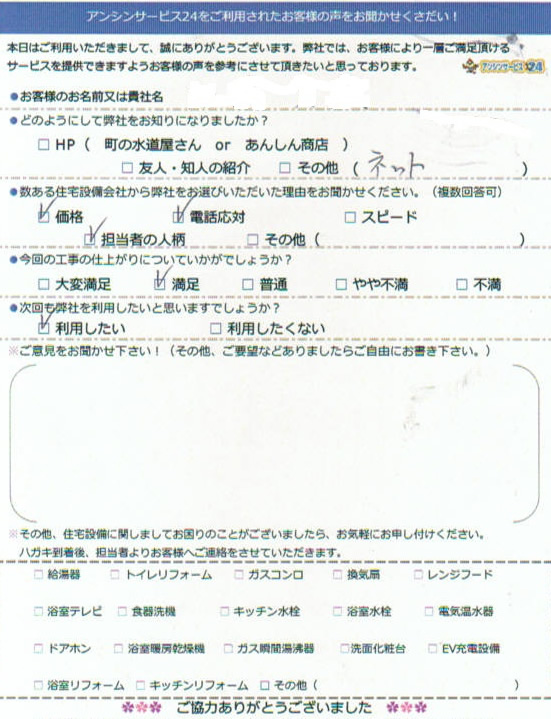 アンシンサービス24をご利用されたお客様の声をお聞かせください！
本日はご利用いただきまして、誠にありがとうございます。弊社では、お客様により一層ご満足頂ける
サービスを提供できますようお客様の声を参考にさせて頂きたいと思っております。 アンシンサービス24
●お客様のお名前又は貴社名
●どのようにして弊社をお知りになりましたか？
□ HP（ 町の水道屋さん or あんしん商店 ）
□ 友人・知人の紹介 □ その他 （ ネット ）
●数ある住宅設備会社から弊社をお選びいただいた理由をお聞かせください。（複数回答可）
☑ 価格 ☑ 電話応対 □ スピード
☑ 担当者の人柄 □ その他（ ）
●今回の工事の仕上がりについていかがでしょうか？
□ 大変満足 ☑ 満足 □ 普通 □ やや不満 □ 不満
●次回も弊社を利用したいと思いますでしょうか？
☑ 利用したい □ 利用したくない
※ご意見をお聞かせ下さい！（その他、ご要望などありましたらご自由にお書き下さい。）
※その他、住宅設備に関しましてお困りのことがございましたら、お気軽にお申し付けください。
ハガキ到着後、担当者よりお客様へご連絡をさせていただきます。
□ 給湯器 □ トイレリフォーム □ ガスコンロ □ 換気扇 □ レンジフード
□ 浴室テレビ □ 食器洗機 □ キッチン水栓 □ 浴室水栓 □ 電気温水器
□ ドアホン □ 浴室暖房乾燥機 □ ガス瞬間湯沸器 □洗面化粧台 □ EV充電設備
□ 浴室リフォーム □ キッチンリフォーム □ その他（ ）
ご協力ありがとうございました